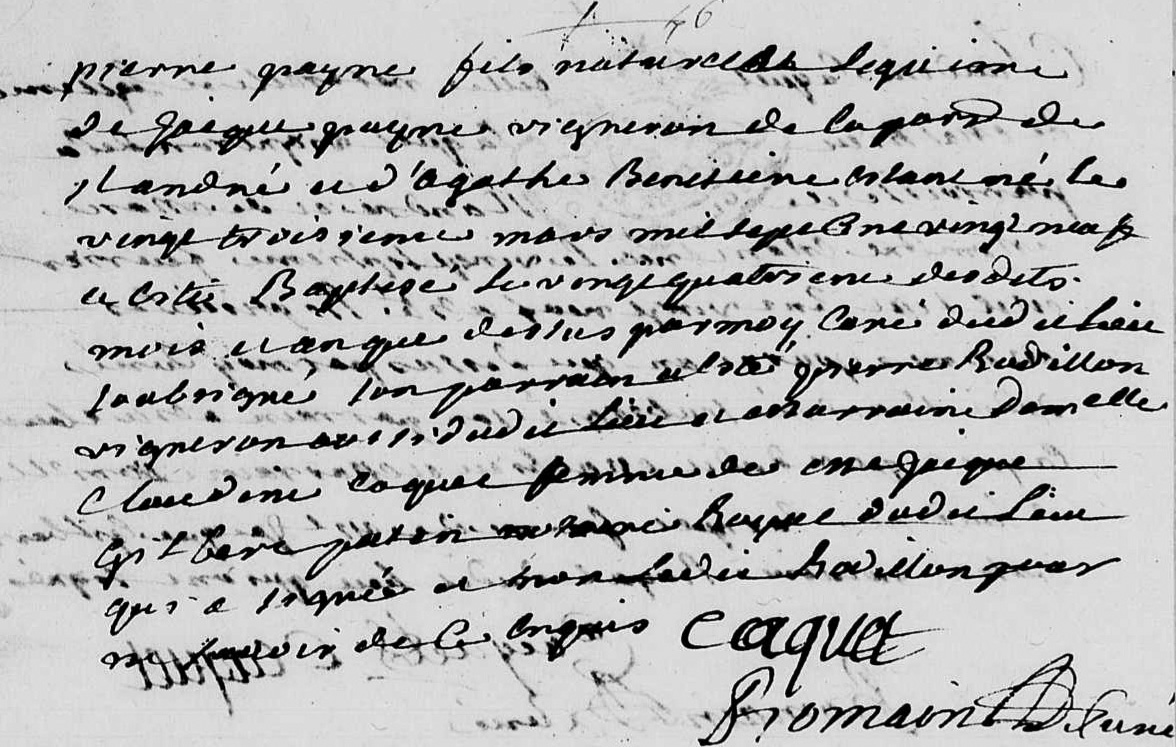 pierre payne fils naturel et legitime
de jacque payne vigneron de la parr de
st andré et d'agathe Benitiere estant né le
vingt troisieme mars mil sept cent vingt neuf
et esté Baptisé le vingt quatrieme desdits
mois et an que dessus par moy Curé dudit lieu
soubsigné son parrain a esté pierre Radillon
vigneron aussi dudit lieu et marraine damelle
Claudine Caquet femme de me jacque
gilbert patin notaire Royal dudit lieu
qui a signée et non ledit Radillon pour
ne scavoir de ce enquis Caquet
Romain Curé